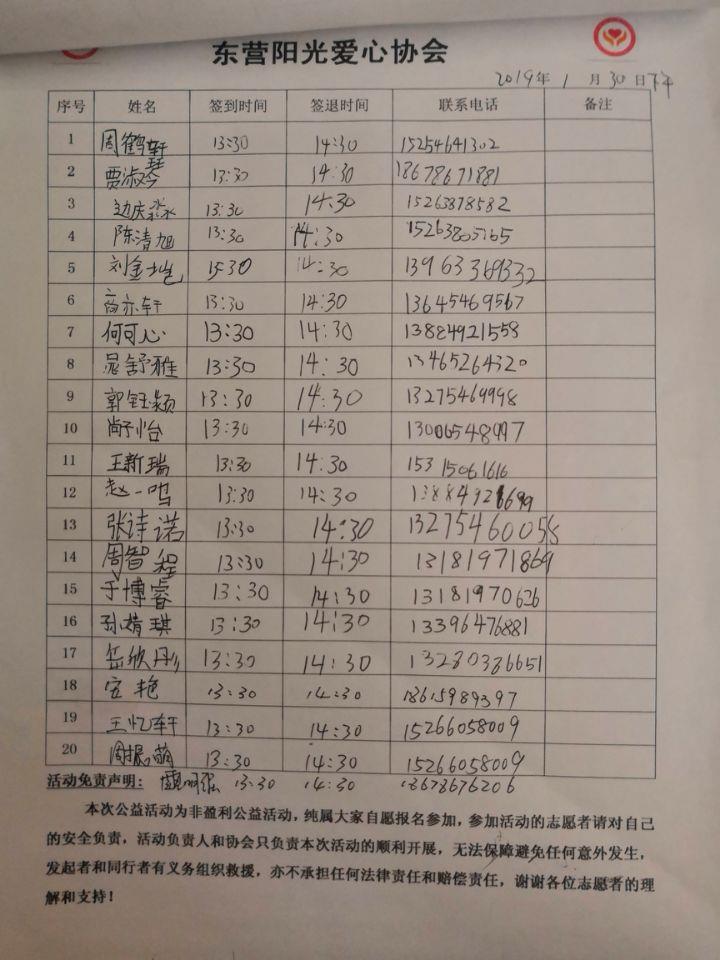 东营阳光爱心协会
2019年 1 月 30 日下午
序号 姓名 签到时间 签退时间 联系电话 备注
1 周鹤轩 13:30 14:30 15254641302
2 贾淑琴 13:30 14:30 18678671881
3 边庆淼 13:30 14:30 15263878582
4 陈清旭 13:30 14:30
5 刘金 15:30 14:30
6 商亦轩 13:30 14:30 13645469567
7 何可心 13:30 14:30 13884921558
8 晁舒雅 13:30 14:30 13465264320
9 郭钰颖 13:30 14:30 13275469998
10 尚怡 13:30 14:30
11 王新瑞 13:30 14:30 15315061616
12 赵一鸣 13:30 14:30
13 张诗诺 13:30 14:30
14 周智程 13:30 14:30 13181971869
15 于博睿 13:30 14:30 13181970626
16 孙婧琪 13:30 14:30 13396476881
17 岳欣彤 13:30 14:30 13280386651
18 安艳 13:30 14:30 18615989397
19 王忆轩 13:30 14:30 15266058009
20 周振萌 13:30 14:30 15266058009
活动免责声明： 13:30 14:30 13678676206
本次公益活动为非盈利公益活动，纯属大家自愿报名参加，参加活动的志愿者请对自己
的安全负责，活动负责人和协会只负责本次活动的顺利开展，无法保障避免任何意外发生，
发起者和同行者有义务组织救援，亦不承担任何法律责任和赔偿责任，谢谢各位志愿者的理
解和支持！